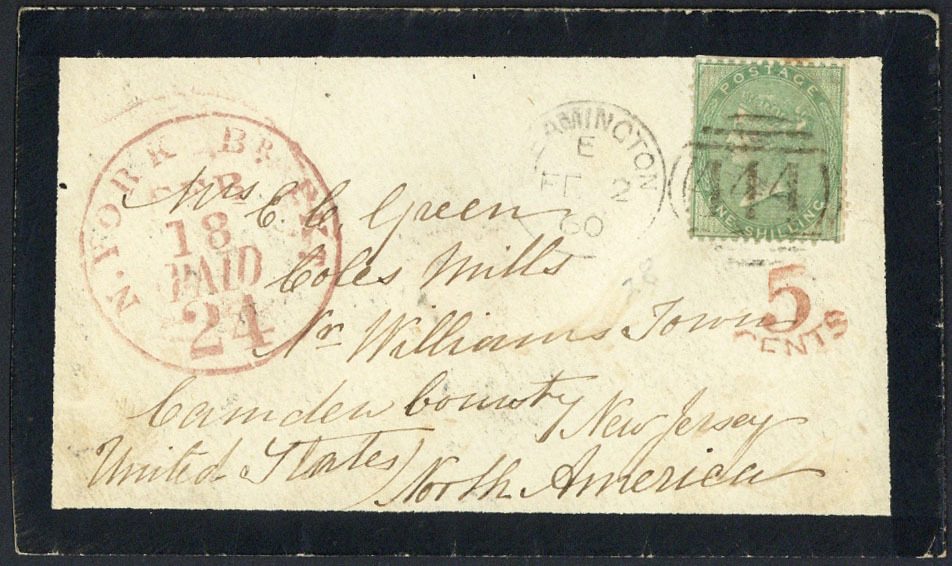 N. YORK BR. PKT
FEB
18
PAID
24
AMINGTON
E
FE 2
60
POSTAGE
444
ONE SHILLING
5
CENTS
28
Mrs E. C. Green
Coles Mills
Nr Williams Town
Camden County New Jersey
United States North America